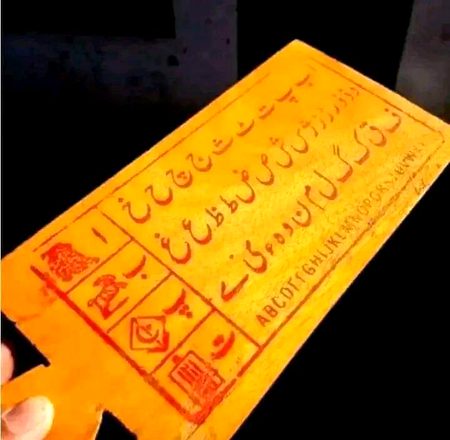 ب پ ت ٹ ث ج چ ح خ
د ڈ ذ ر ڑ ز ژ س ش ص ض ط ظ ع غ
ف ق ک گ ل م ن و ہ ء ی ے
ABCDEFGHIJKLMNOPQRS
ا
ب
پ
ت